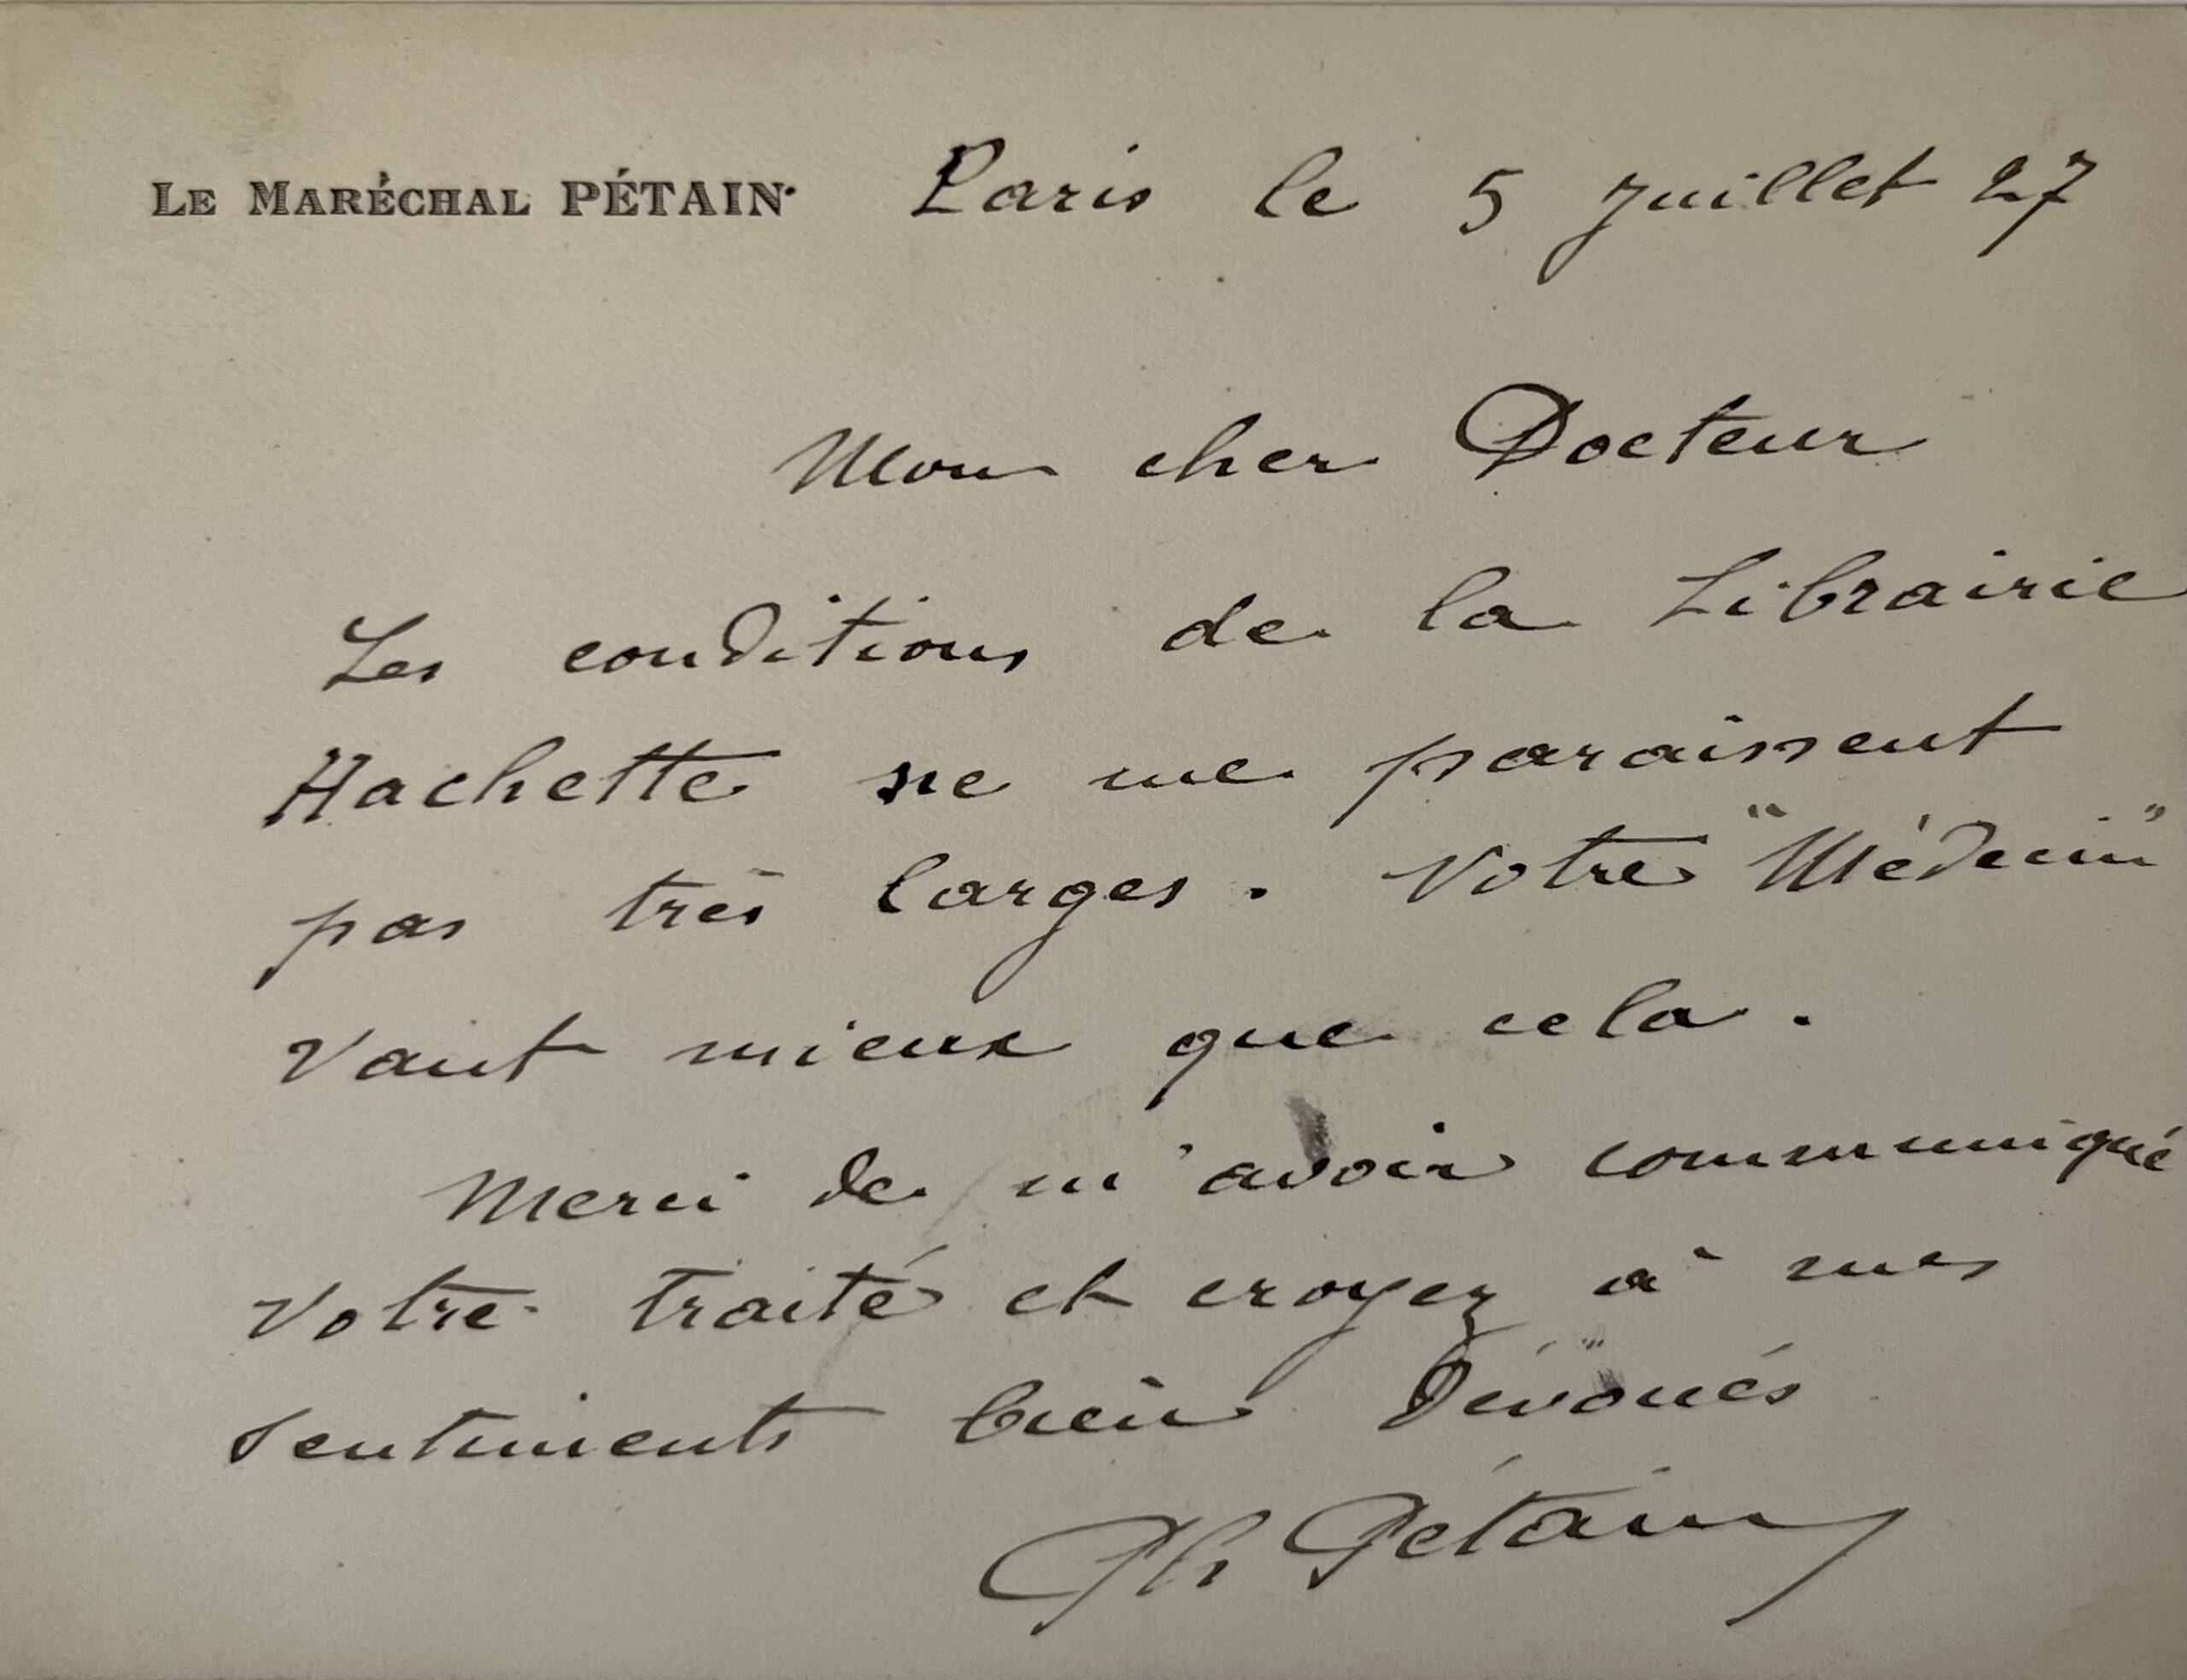 LE MARÉCHAL PÉTAIN Paris le 5 juillet 27
Mon cher Docteur
Les conditions de la Librairie
Hachette ne me paraissent
pas très larges. Votre "Médecin"
vaut mieux que cela.
Merci de m'avoir communiqué
votre traité et croyez à mes
sentiments bien dévoués
Ph Pétain